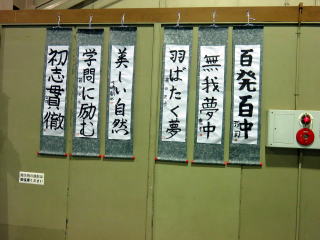 百発百中
無我夢中
羽ばたく夢
美しい自然
学問に励む
初志貫徹